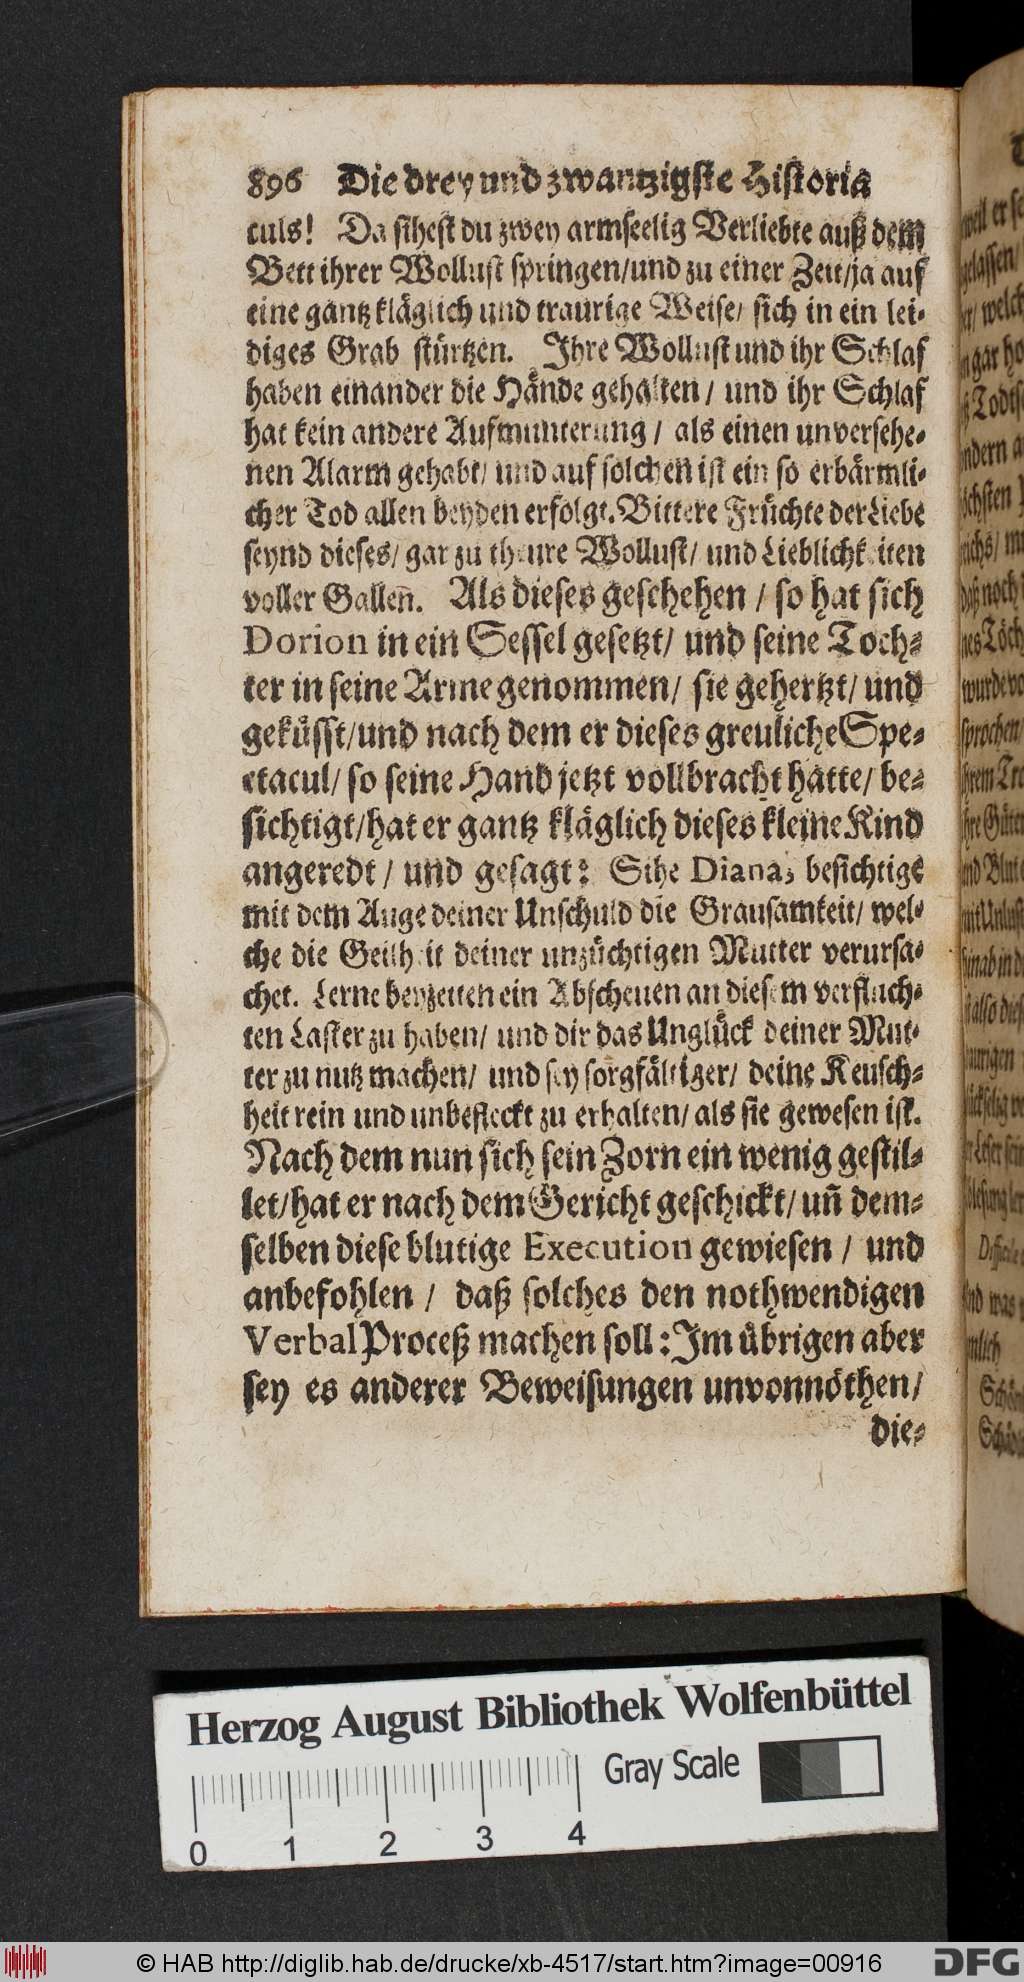 896 Die drey und zwantzigste Historia
culs! Da sihest du zwey armseelig Verliebte auß dem
Bett ihrer Wollust springen/und zu einer Zeit/ja auf
eine gantz kläglich und traurige Weise/ sich in ein lei-
diges Grab stürtzen. Ihre Wollust und ihr Schlaf
haben einander die Hände gehalten/ und ihr Schlaf
hat kein andere Aufmunterung/ als einen unversehe-
nen Alarm gehabt/ und auf solchen ist ein so erbärmli-
cher Tod allen beyden erfolgt. Bittere Früchte der Liebe
seynd dieses/ gar zu theure Wollust/ und Lieblichkeiten
voller Gallen̄. Als dieses geschehen/ so hat sich
Dorion in ein Sessel gesetzt/ und seine Toch-
ter in seine Arme genommen/ sie gehertzt/ und
geküsst/und nach dem er dieses greuliche Spe-
ctacul/ so seine Hand jetzt vollbracht hatte/ be-
sichtigt/hat er gantz kläglich dieses kleine Kind
angeredt/ und gesagt: Sihe Diana, besichtige
mit dem Auge deiner Unschuld die Grausamkeit/ wel-
che die Geilheit deiner unzüchtigen Mutter verursa-
chet. Lerne beyzeiten ein Abscheuen an diesem verfluch-
ten Laster zu haben/ und dir das Unglück deiner Mut-
ter zu nutz machen/ und sey sorgfältiger/ deine Keusch-
heit rein und unbefleckt zu erhalten/ als sie gewesen ist.
Nach dem nun sich sein Zorn ein wenig gestil-
let/hat er nach dem Gericht geschickt/ uñ dem-
selben diese blutige Execution gewiesen/ und
anbefohlen/ daß solches den nothwendigen
Verbal Proceß machen soll: Im übrigen aber
sey es anderer Beweisungen unvonnöthen/
die-
Herzog August Bibliothek Wolfenbüttel
Gray Scale
0 1 2 3 4
© HAB http://diglib.hab.de/drucke/xb-4517/start.htm?image=00916
DFG